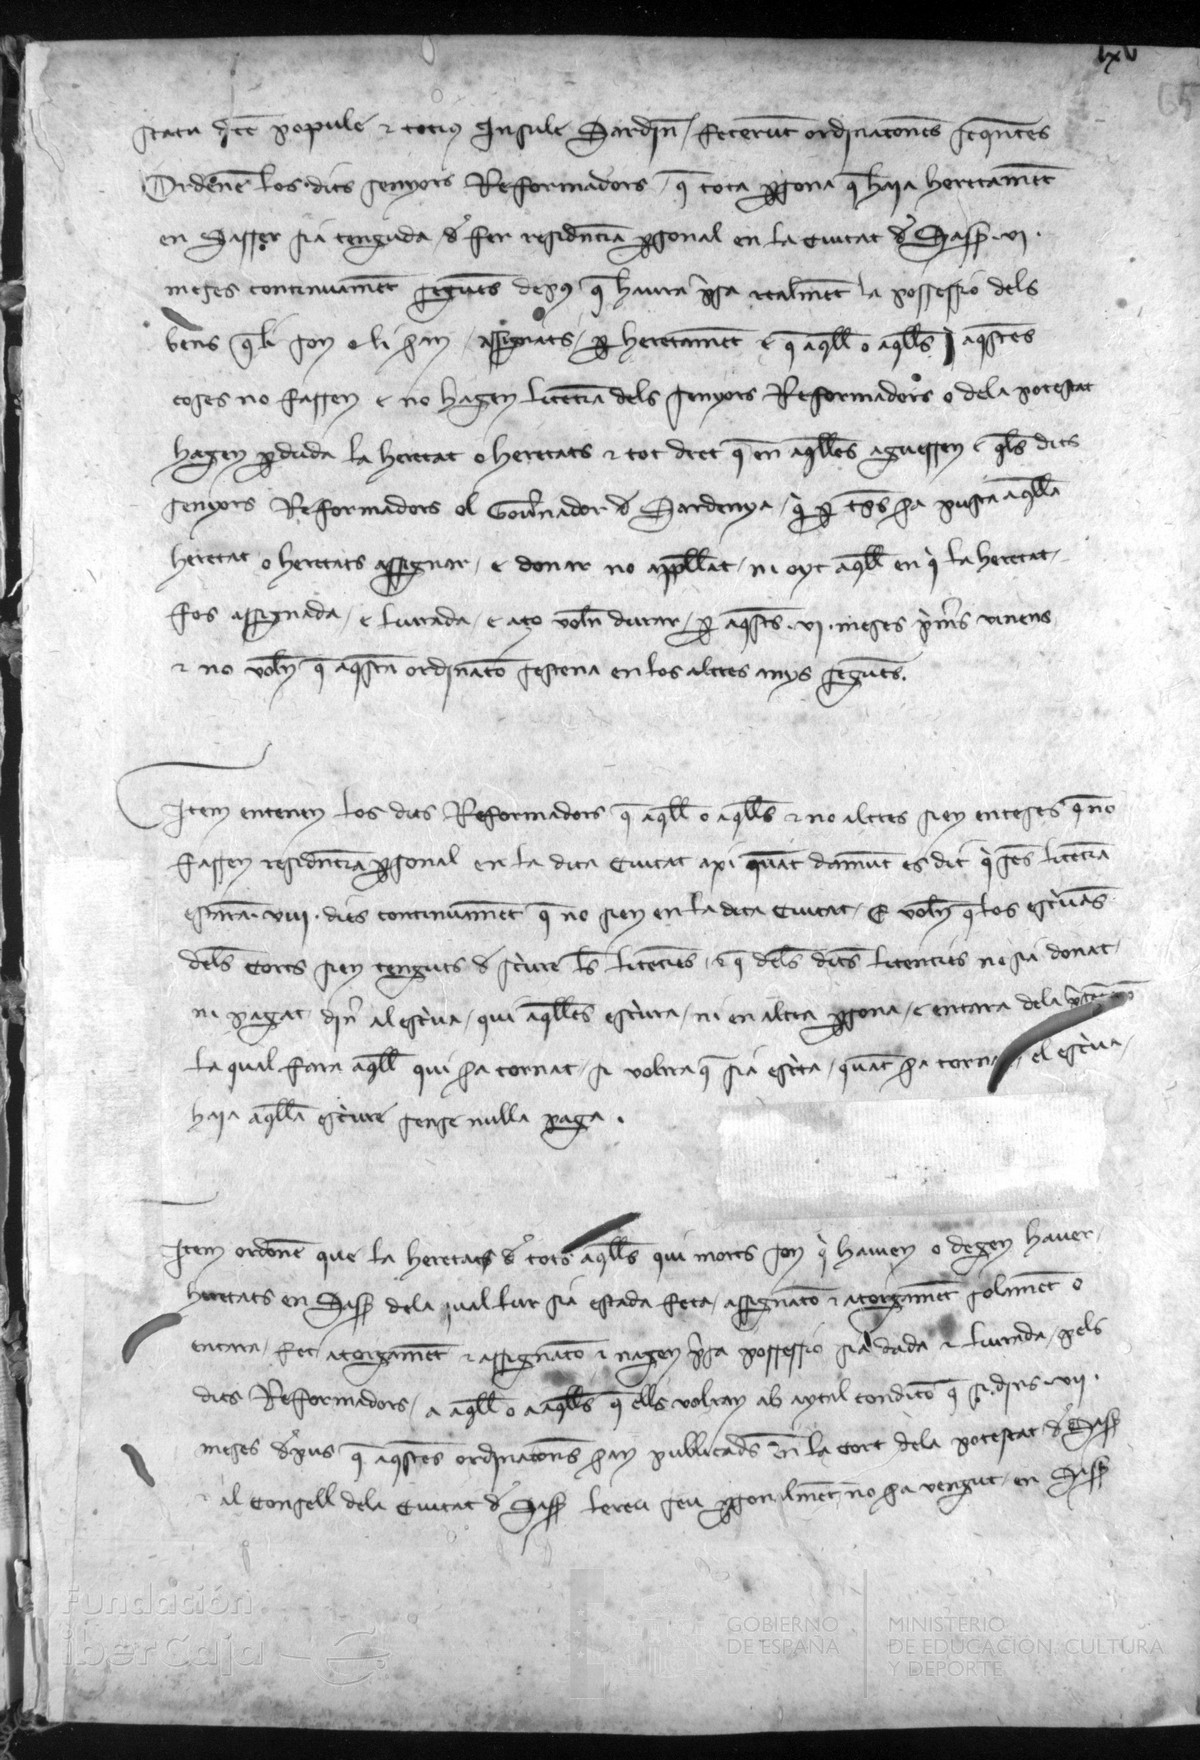 lxv
65
statu dicte popule et totius Insule Sardin / fecerunt ordinationes sequentes
Ordenen los dits senyors Reformadors / que tota persona que haja heretament
en Sasser sia tenguda de fer residencia personal en la Ciutat de Sasser .vi.
meses continuament seguens depus que haura presa realment la possessio dels
bens quels son o li seran / assignats / per heretament e que aquell o aquells aquestes
coses no fassen e no hagen licencia dels senyors Reformadors o dela potestat
hagen perduda la heretat o heretats et tot dret que en aquelles aguessen e quels dits
senyors Reformadors ol Governador de Sardenya / qui per temps sera puscha aquella
heretat o heretats assignar / e donar no appellat / ni oyt aquell en qui la heretat /
fos assignada / e liurada / e aço volen durar / per aquests .vi. meses primers vinens
et no volen que aquesta ordinatio sestena en los altres anys seguens.
Item entenen los dits Reformadors que aquell o aquells et no altres sien enteses que no
fassen residencia personal en la dita Ciutat axi quant damunt es dit qui sens licencia
estaran .viii. dies continuament que no sien en la dita Ciutat / E volen que los escrivans
dels Corts sien tenguts de scriure les licencies / et que dels dites licencies no sia donat /
ni pagat diner al escriva / qui aquelles escriura / ni en altra persona / e encara dela
la qual fara aquell qui sera tornat / si volra que sia escrita / quant sera tornat / el escriva /
haja aquella escriure sense nulla paga .
Item ordonen que la heretats de tots aquells qui morts son qui havien o degen haver /
heretats en Sasser dela qual lur sia estada feta / assignatio et atorgament solament o
encara / fet atorgament et assignatio et nagen presa possessio sia dada et liurada / pels
dits Reformadors / a aquell o a aquells que ells volran ab aytal conditio que si dins .vii.
meses depus que aquestes ordinations seran publicades en la Cort dela potestat de Sasser
et al Consell dela Ciutat de Sasser lereu seu personalment no sera vengut / en Sasser
Fundación
iberCaja
GOBIERNO
DE ESPAÑA
MINISTERIO
DE EDUCACIÓN, CULTURA
Y DEPORTE